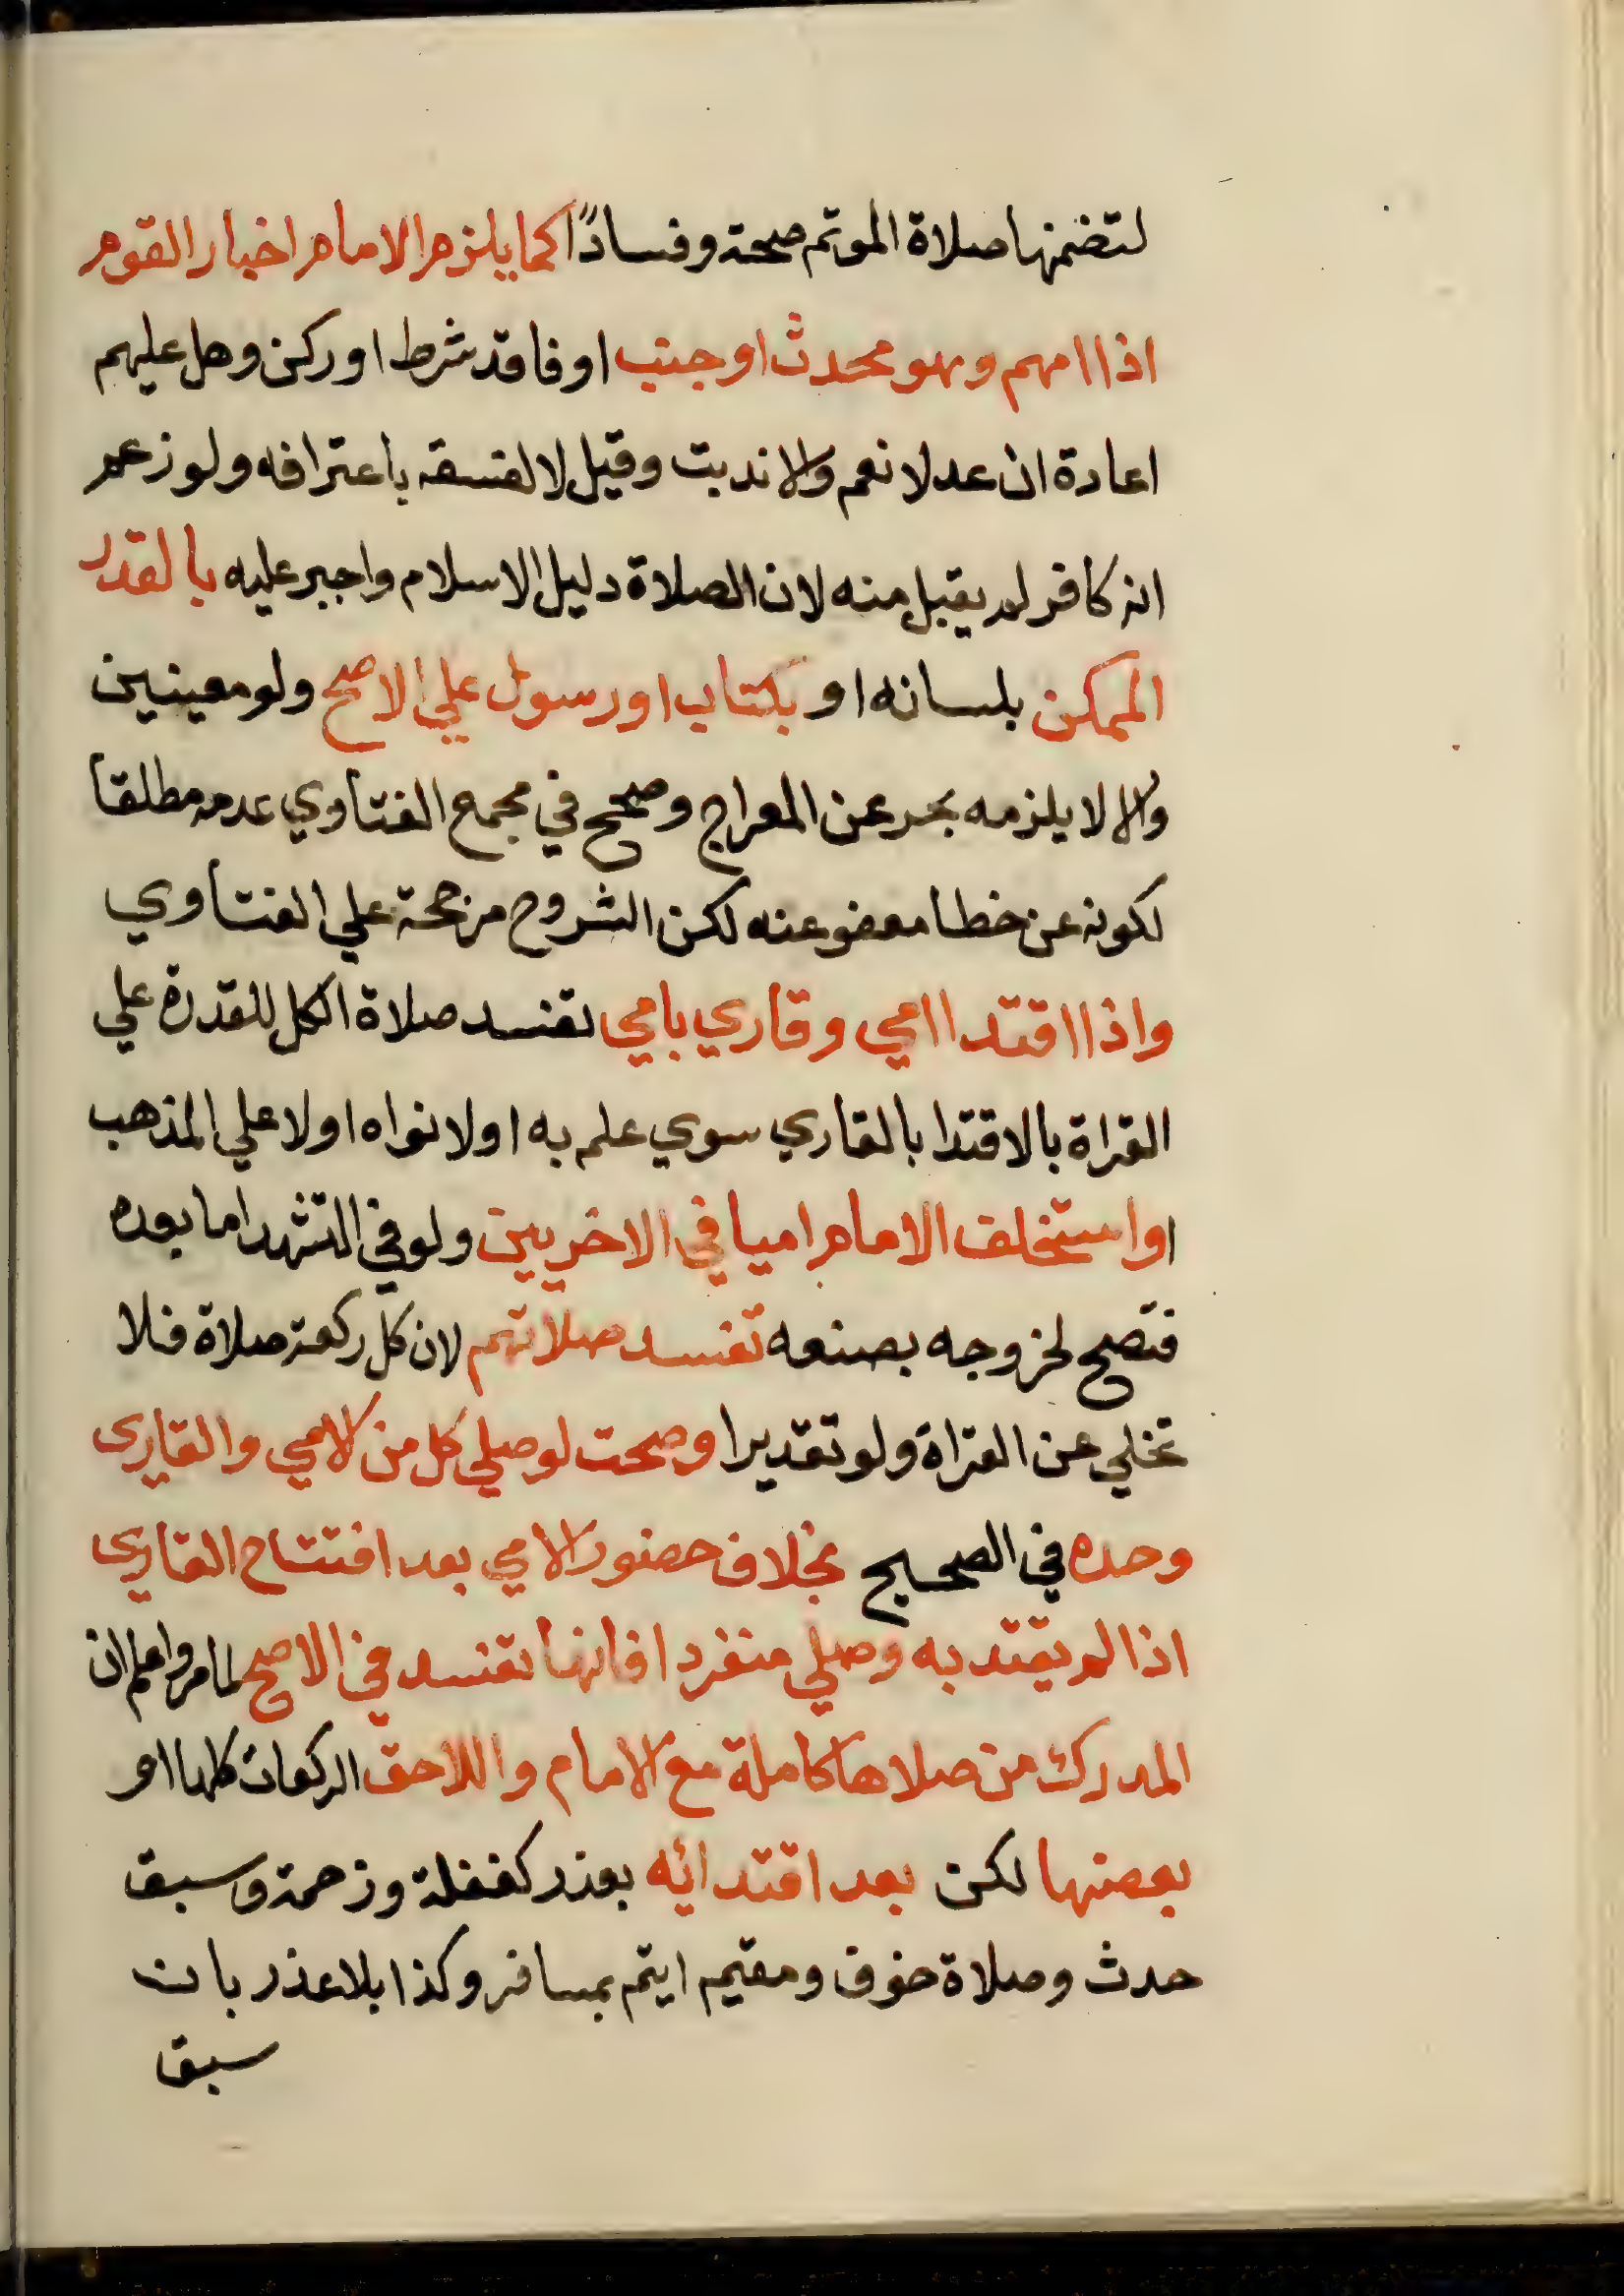 لتضمنها صلاة الموتم صحة وفسادًا كما يلزم الامام اخبار القوم
اذا امهم وهو محدث او جنب او فاقد شرط او ركن وهل عليهم
اعادة ان عدلا نعم والا ندبت وقيل لا لفسقه باعترافه ولو زعم
انه كافر لم يقبل منه لان الصلاة دليل الاسلام واجبر عليه بالقدر
الممكن بلسانه او بكتاب او رسول علي الاصح ولو معينين
والا لا يلزمه بحر عن المعراج وصحح في مجمع الفتاوي عدمه مطلقا
لكونه عن خطا معفو عنه لكن الشروح مرجحة علي الفتاوي
واذا اقتدا امي وقاري بامي تفسد صلاة الكل للقدرة علي
القراة بالاقتدا بالقاري سوي علم به او لا نواه او لا علي المذهب
او استخلف الامام اميا في الاخريين ولو في التشهد اما بعده
فتصح لخروجه بصنعه تفسد صلاتهم لان كل ركعة صلاة فلا
تخلي عن القراة ولو تقديرا وصحت لو صلي كل من الامي والقاري
وحده في الصحيح بخلاف حضور الامي بعد افتتاح القاري
اذا لم يقتد به وصلي منفردا فانها تفسد في الاصح لما مر واعلم ان
المدرك من صلاها كاملة مع الامام واللاحق الركعات كلها او
بعضها لكن بعد اقتدائه بعذر كغفلة وزحمة وسبق
حدث وصلاة خوف ومقيم ايتم بمسافر وكذا بلا عذر بان
سبق